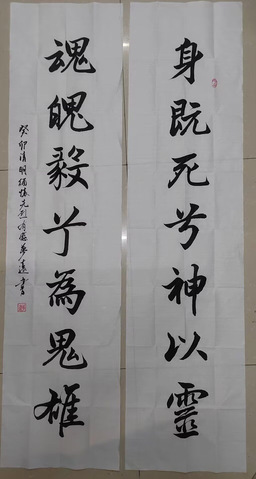 身既死兮神以靈
魂魄毅兮為鬼雄
癸卯清明緬懷先烈
書